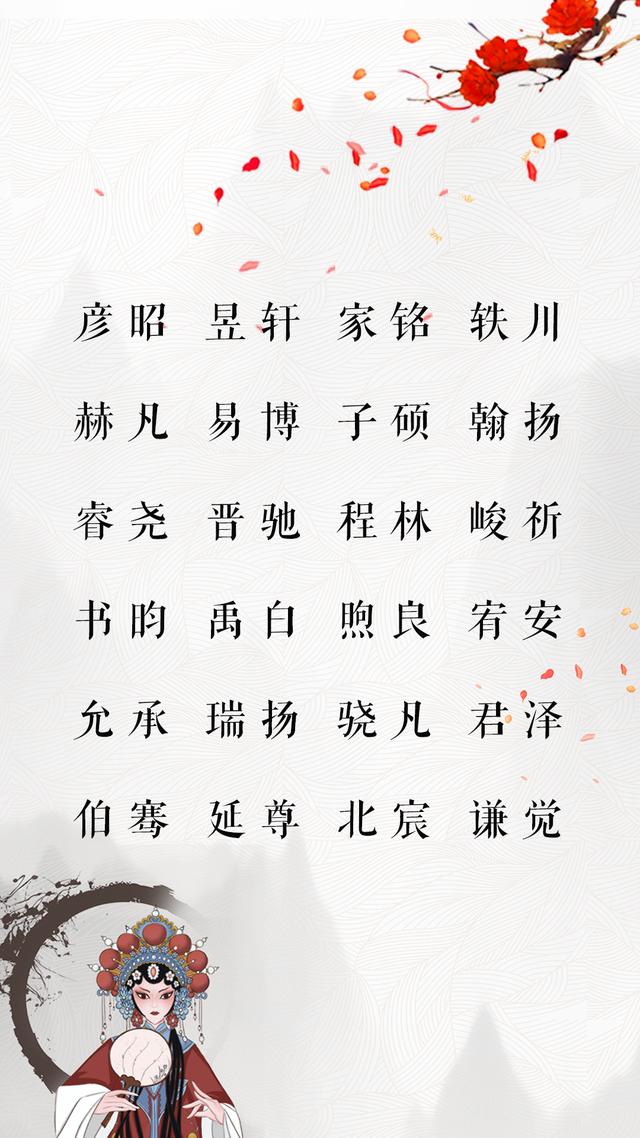 彦昭 昱轩 家铭 轶川
赫凡 易博 子硕 翰扬
睿尧 晋驰 程林 峻祈
书昀 禹白 煦良 宥安
允承 瑞扬 骁凡 君泽
伯骞 延尊 北宸 谦觉